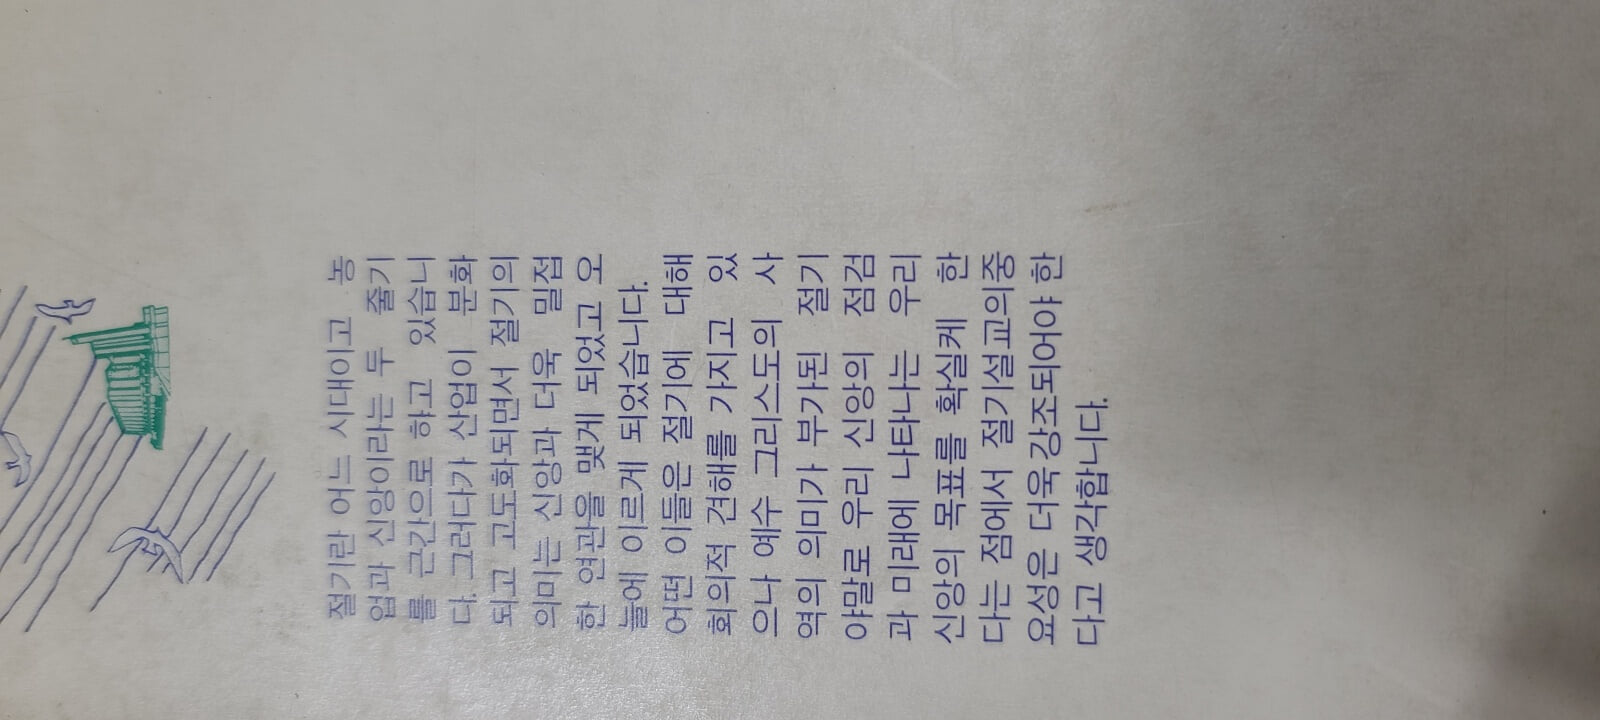 절기란 어느 시대이고 농
업과 신앙이라는 두 줄기
를 근간으로 햐고 있습니
다. 그러다가 산업이 분화
되고 고도화되면서 절기의
의미는 신앙과 더욱 밀접
한 연관을 맺게 되었고 오
늘에 이르게 되었습니다.
어떤 이들은 절기에 대해
회의적 견해를 가지고 있
으나 예수 그리스도의 사
역의 의미가 부가된 절기
야말로 우리 신앙의 점검
과 미래에 나타나는 우리
신앙의 목표를 확실케 한
다는 점에서 절기설교의중
요성은 더욱강조되어야 한
다고 생각합니다.